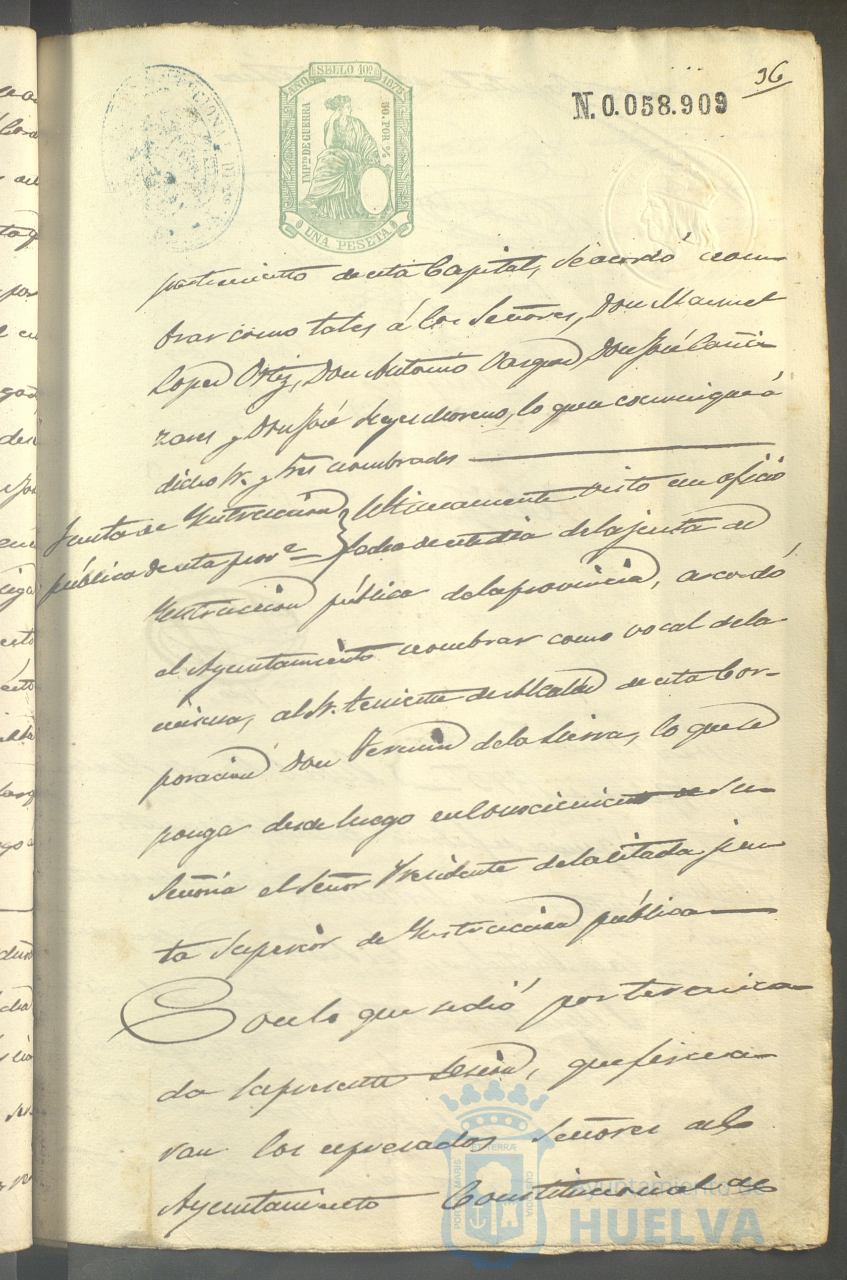 36
N. 0.058.909
AÑO SELLO 10º 1875
IMPTO DE GUERRA
50. POR %
UNA PESETA
partimiento de esta Capital, se acordó nom-
brar como tales á los Señores, Don Manuel
Lopez Ortiz, Don Antonio Vargas, Don José Cañi-
zares y Don José Reyes Moreno, lo que se comunique á
dicho Sr. y tres nombrados
Junta de Instruccion
pública de esta provª
Ultimamente visto un oficio
fecha de este dia de la junta de
Instruccion pública de la provincia, acordó
el Ayuntamiento nombrar como vocal de la
misma, al Sr. teniente de Alcalde de esta Cor-
poracion Don Fermin de la Sierra, lo que se
ponga desde luego en conocimiento de Su
Señoria el Señor Presidente de la citada jun-
ta Superior de Instruccion pública
Con lo que se dió por termina-
da la presente Sesion, que firma-
ran los espresados Señores del
Ayuntamiento Constitucional de
PORTUS MARIS
ET TERRÆ
CUSTODIA
Ayuntamiento de
HUELVA